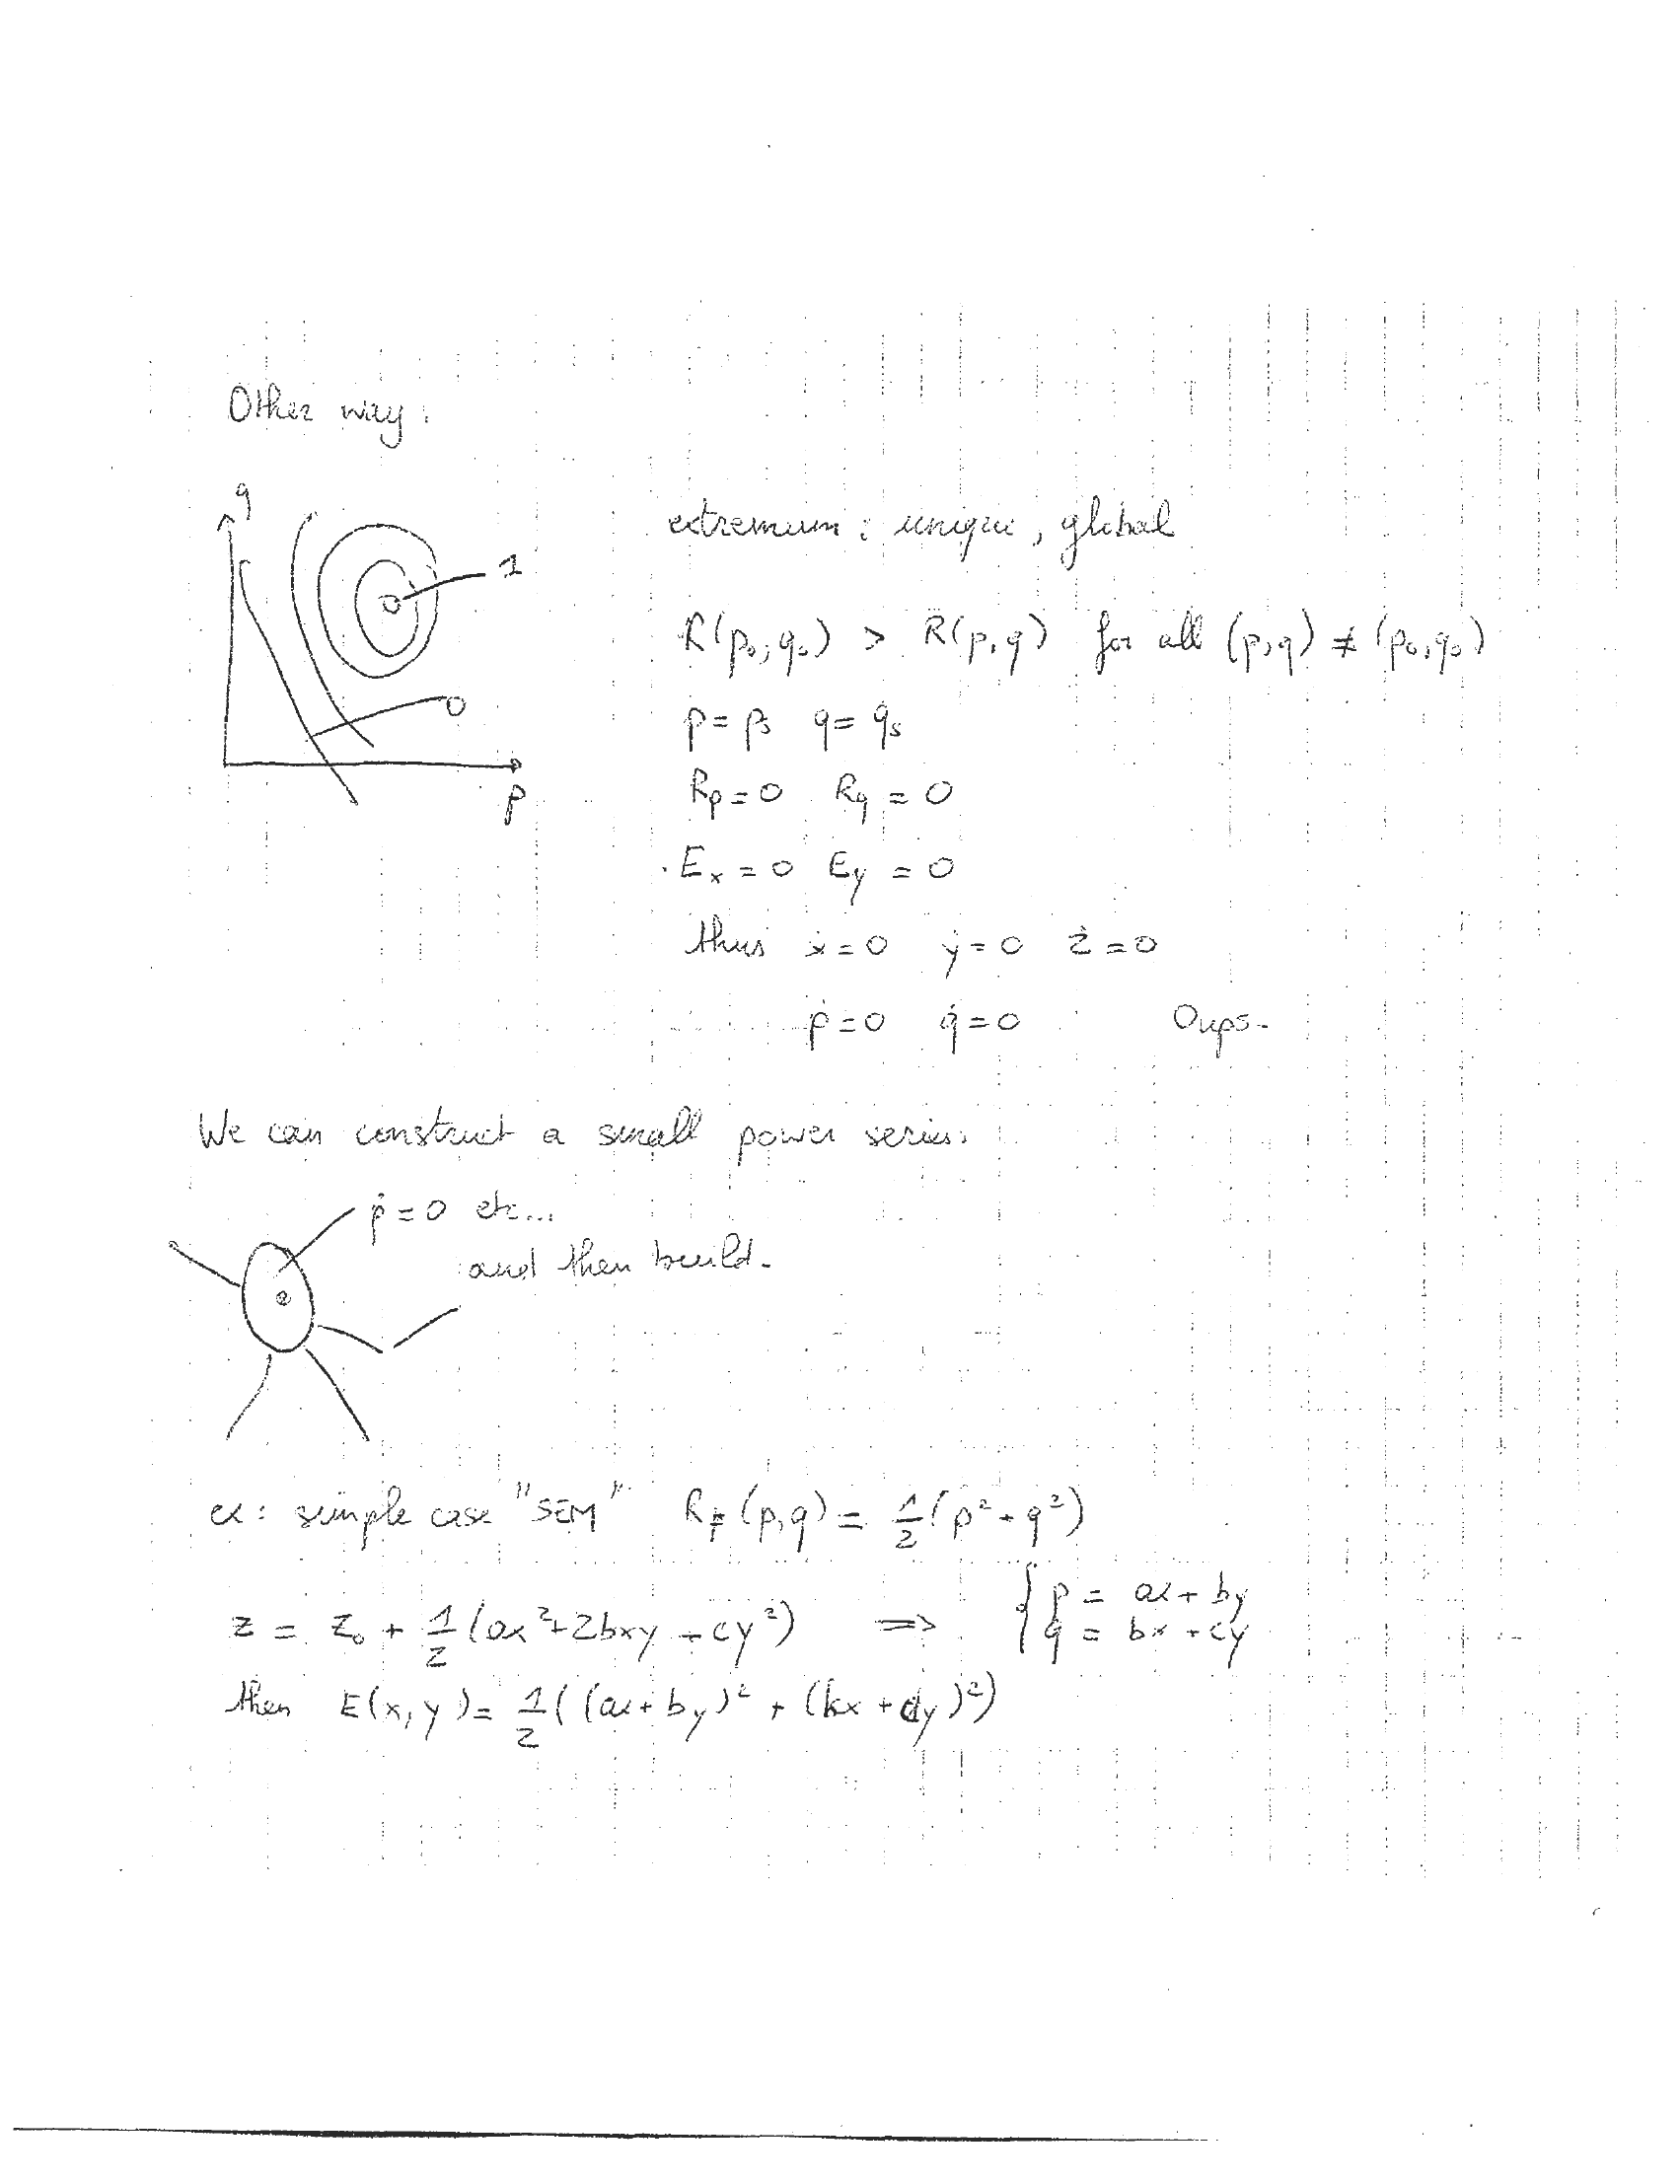 Other way:
q
1
0
p
extremum: unique, global
R(p₀,q₀) > R(p,q) for all (p,q) ≠ (p₀,q₀)
p = ps q = qs
Rp = 0 Rq = 0
Ex = 0 Ey = 0
thus ẋ = 0 ẏ = 0 ż = 0
ṗ = 0 q̇ = 0 Oups.
We can construct a small power series:
ṗ = 0 etc...
and then build.
ex: simple case "SEM" R (p,q) = 1/2 (p² + q²)
z = z₀ + 1/2 (ax² + 2bxy + cy²) => { p = ax + by
q = bx + cy
then E(x,y) = 1/2 ( (ax + by)² + (bx + cy)² )